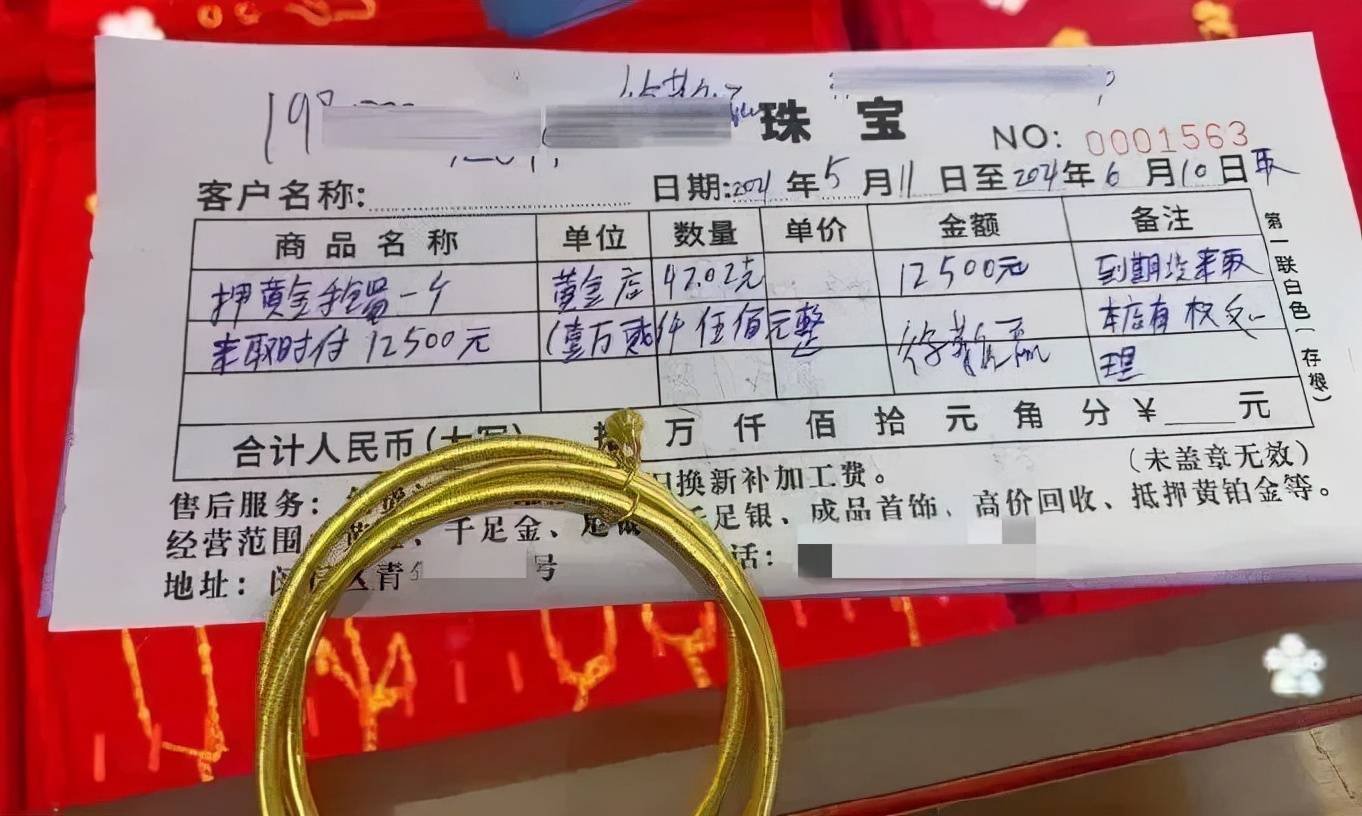 19
珠宝
NO: 0001563
客户名称: 日期: 2021年5月11日至2021年6月10日取
商品名称 单位 数量 单价 金额 备注
押黄金手镯一个 黄金店 42.02克 12500元 到期没来取
来取时付12500元 (壹万贰仟伍佰元整 本店有权处
理
合计人民币(大写) 拾 万 仟 佰 拾 元 角 分 ¥ 元
第一联白色(存根)
(未盖章无效)
售后服务: 日换新补加工费。
经营范围 千足金、足银 千足银、成品首饰、高价回收、抵押黄铂金等。
地址: 区青 号 话: